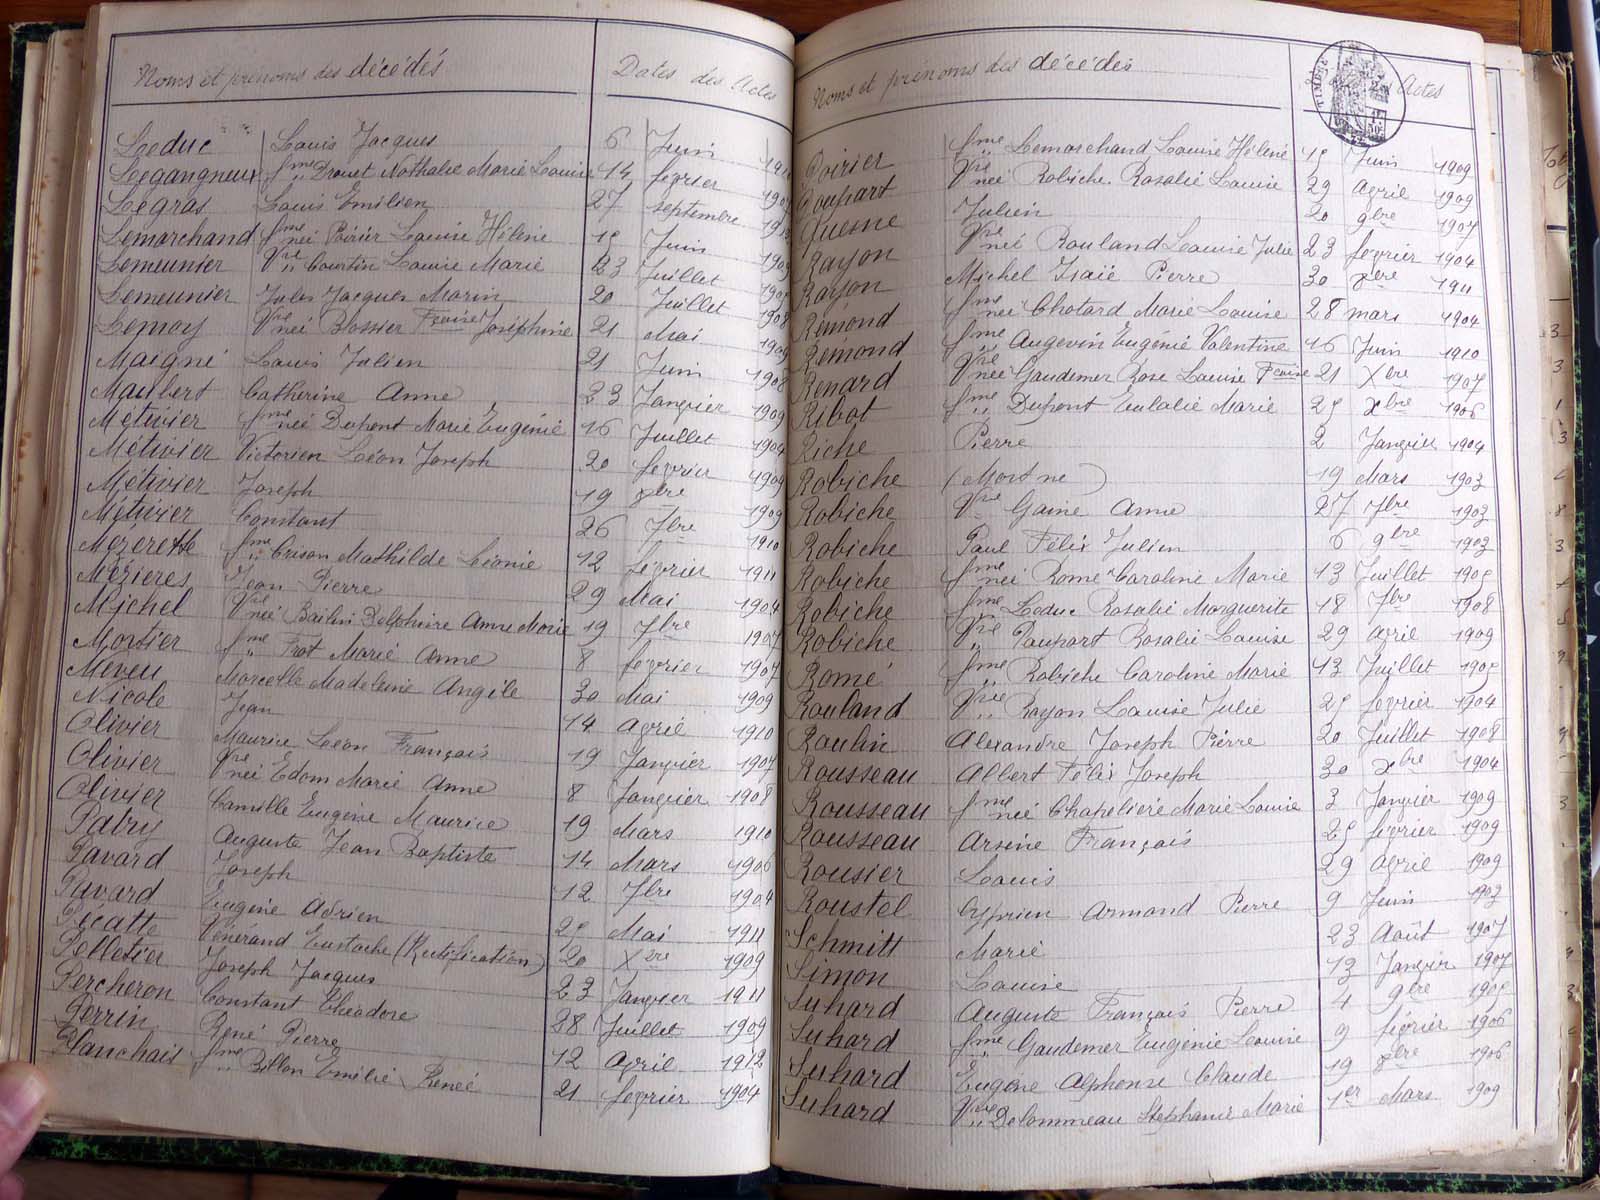 Noms et prénoms des décédés Dates des Actes
Leduc Louis Jacques 6 Juin
Legangneux fme " Drouet Nathalie Marie Louise 14 février
Legras Louis Emilien 27 septembre
Lemarchand fme née Poirier Louise Hélène 15 Juin 1909
Lemeunier Vve " Courtin Louise Marie 23 Juillet
Lemeunier Jules Jacques Marin 20 Juillet 1908
Lemoy Vve née Blossier Fçoise Joséphine 21 Mai 1909
Maigné Louis Julien 21 Juin 1908
Maulbert Catherine Anne 23 Janvier 1909
Métivier fme née Dupont Marie Eugénie 16 Juillet 1904
Métivier Victorien Léon Joseph 20 février 1909
Métivier Joseph 19 xbre 1909
Métivier Constant 26 7bre 1910
Mézerette fme " Crison Mathilde Léonie 12 février 1911
Mézières Jean Pierre 29 Mai 1904
Michel Vve née Bailin Delphine Anne Marie 19 7bre 1907
Mortier fme " Frot Marie Anne 8 février 1907
Meveu Marcelle Madeleine Angèle 30 Mai 1909
Nicole Jean 14 avril 1910
Olivier Maurice Léon François 19 Janvier 1907
Olivier Vve née Edom Marie Anne 8 Janvier 1908
Olivier Camille Eugène Maurice 19 Mars 1910
Patry Auguste Jean Baptiste 14 Mars 1906
Pavard Joseph 12 7bre 1904
Pavard Eugène Adrien 25 Mai 1911
Pécatte Vénérand Eustache (Rectification) 20 Xbre 1909
Pelletier Joseph Jacques 23 Janvier 1911
Percheron Constant Théodore 28 Juillet 1909
Perrin René Pierre 12 avril 1912
Planchais fme " Billon Emélie Renée 21 février 1904
Noms et prénoms des décédés Actes
TIMBRE
Poirier fme " Lemarchand Louise Hélène 15 Juin 1909
Poupart Vve née Robiche Rosalie Louise 29 avril 1909
Quesne Julien 20 9bre 1907
Rayon Vve née Rouland Louise Julie 23 février 1904
Rayon Michel Isaïe Pierre 30 xbre 1911
Rémond fme née Chotard Marie Louise 28 mars 1904
Rémond fme " Augevin Eugénie Valentine 16 Juin 1910
Renard Vve née Gaudemer Rose Louise Fçoise 21 Xbre 1907
Ribot fme " Dupont Eulalie Marie 25 xbre 1906
Riche Pierre 2 Janvier 1904
Robiche (Mort né) 19 Mars 1903
Robiche Vve Gaine Anne 27 7bre 1903
Robiche Paul Félix Julien 6 9bre 1903
Robiche fme née Romé Caroline Marie 13 Juillet 1905
Robiche fme " Leduc Rosalie Marguerite 18 7bre 1908
Robiche Vve " Poupart Rosalie Louise 29 avril 1909
Romé fme " Robiche Caroline Marie 13 Juillet 1905
Rouland Vve " Rayon Louise Julie 25 février 1904
Roulin Alexandre Joseph Pierre 20 Juillet 1908
Rousseau Albert Félix Joseph 30 xbre 1904
Rousseau fme née Chapelière Marie Louise 3 Janvier 1909
Rousseau Arsène François 25 février 1909
Rousier Louis 29 avril 1909
Roustel Cyprien Armand Pierre 9 Juin 1903
Schmitt Marie 23 Août 1907
Simon Louise 13 Janvier 1907
Suhard Auguste François Pierre 4 9bre 1905
Suhard fme " Gaudemer Eugénie Louise 9 février 1906
Suhard Eugène Alphonse Claude 19 xbre 1906
Suhard Vve " Delommeau Stéphanie Marie 1er Mars 1909